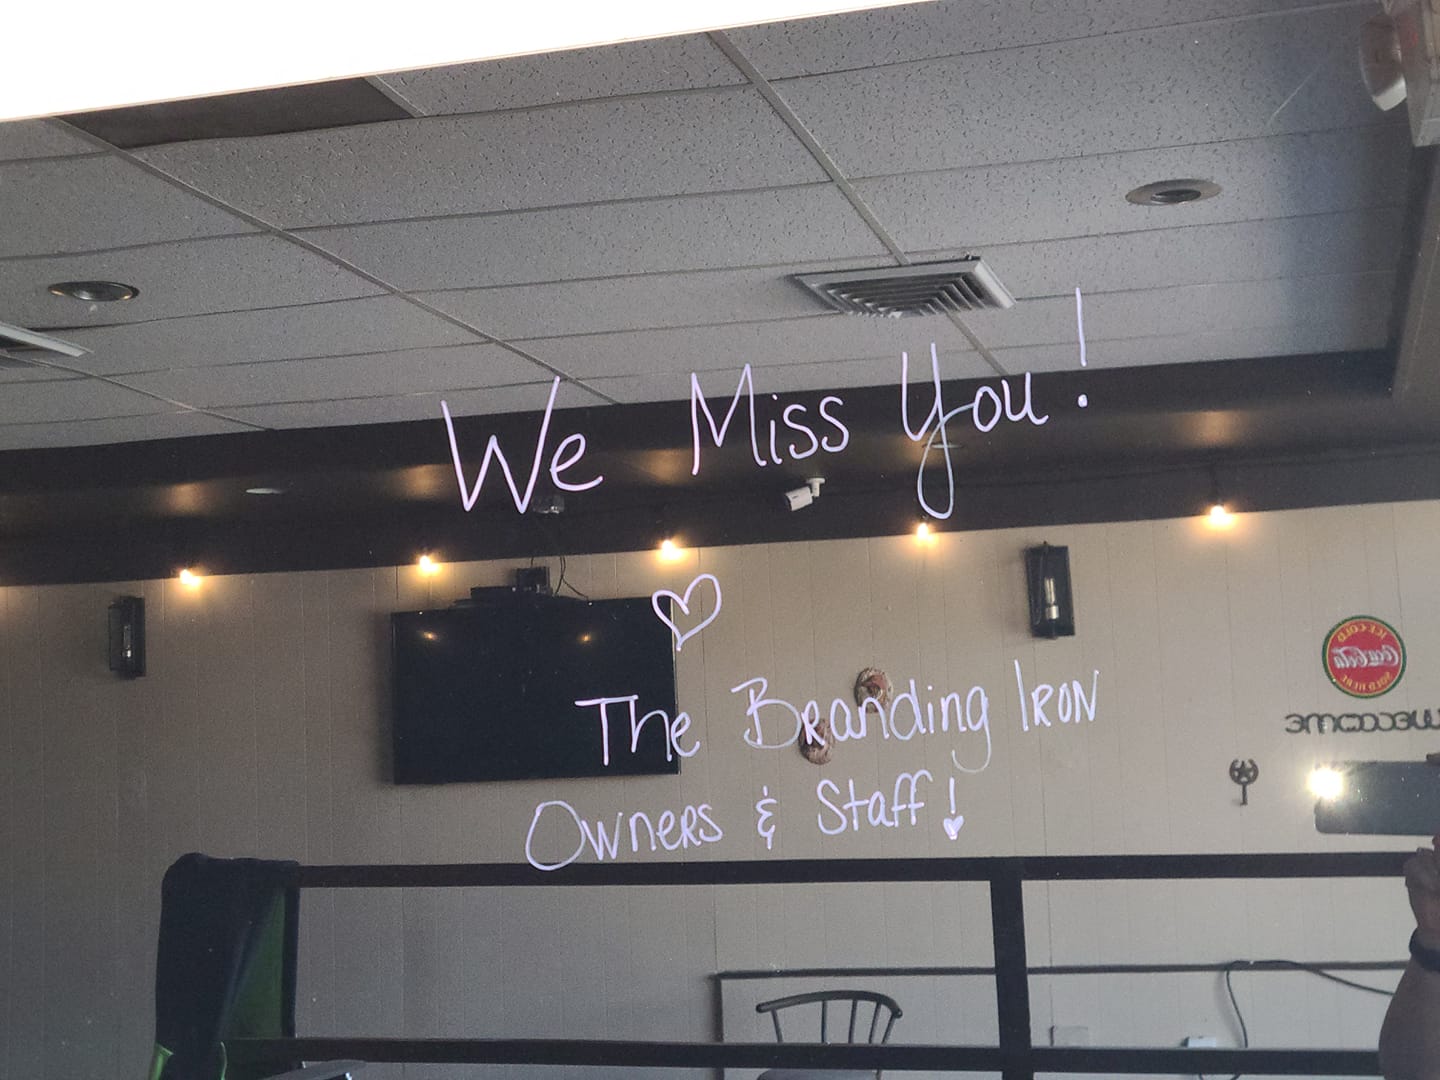 We Miss You!
The Branding Iron
Owners & Staff!
ICE COLD
Coca-Cola
SOLD HERE
WELCOME